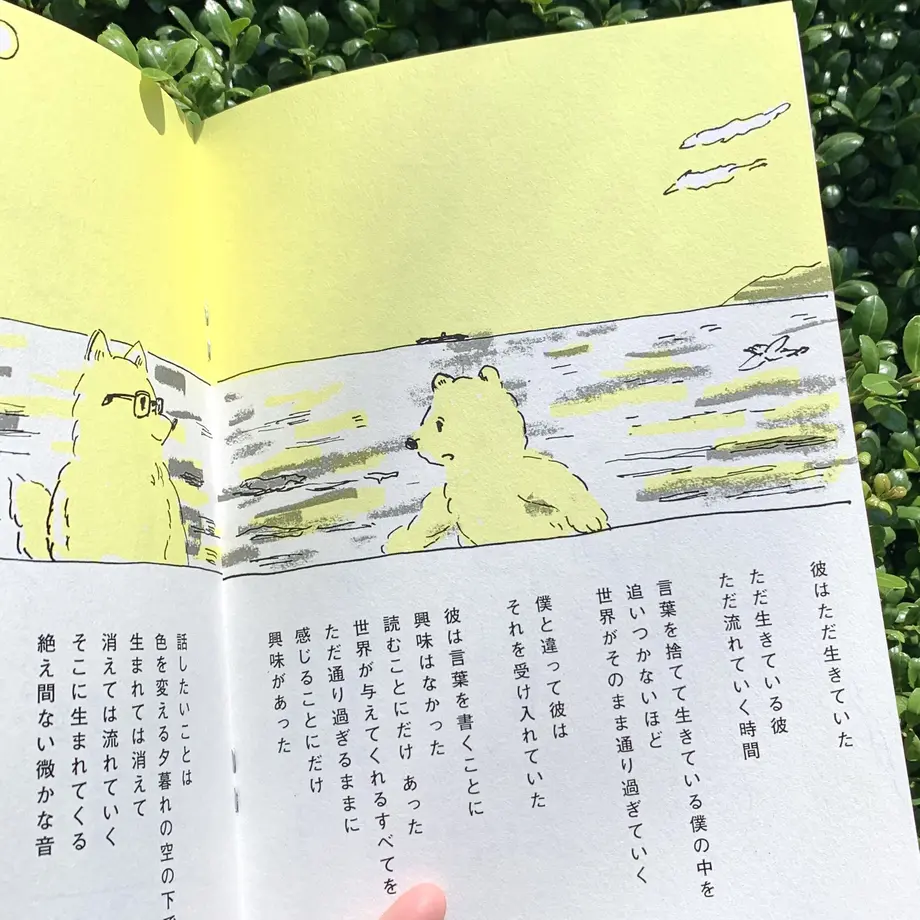 彼はただ生きていた
ただ生きている彼
ただ流れていく時間
言葉を捨てて生きている僕の中を
追いつかないほど
世界がそのまま通り過ぎていく
僕と違って彼は
それを受け入れていた
彼は言葉を書くことに
興味はなかった
読むことにだけ あった
世界が与えてくれるすべてを
ただ通り過ぎるままに
感じることにだけ
興味があった
話したいことは
色を変える夕暮れの空の下で
生まれては消えて
消えては流れていく
そこに生まれてくる
絶え間ない微かな音